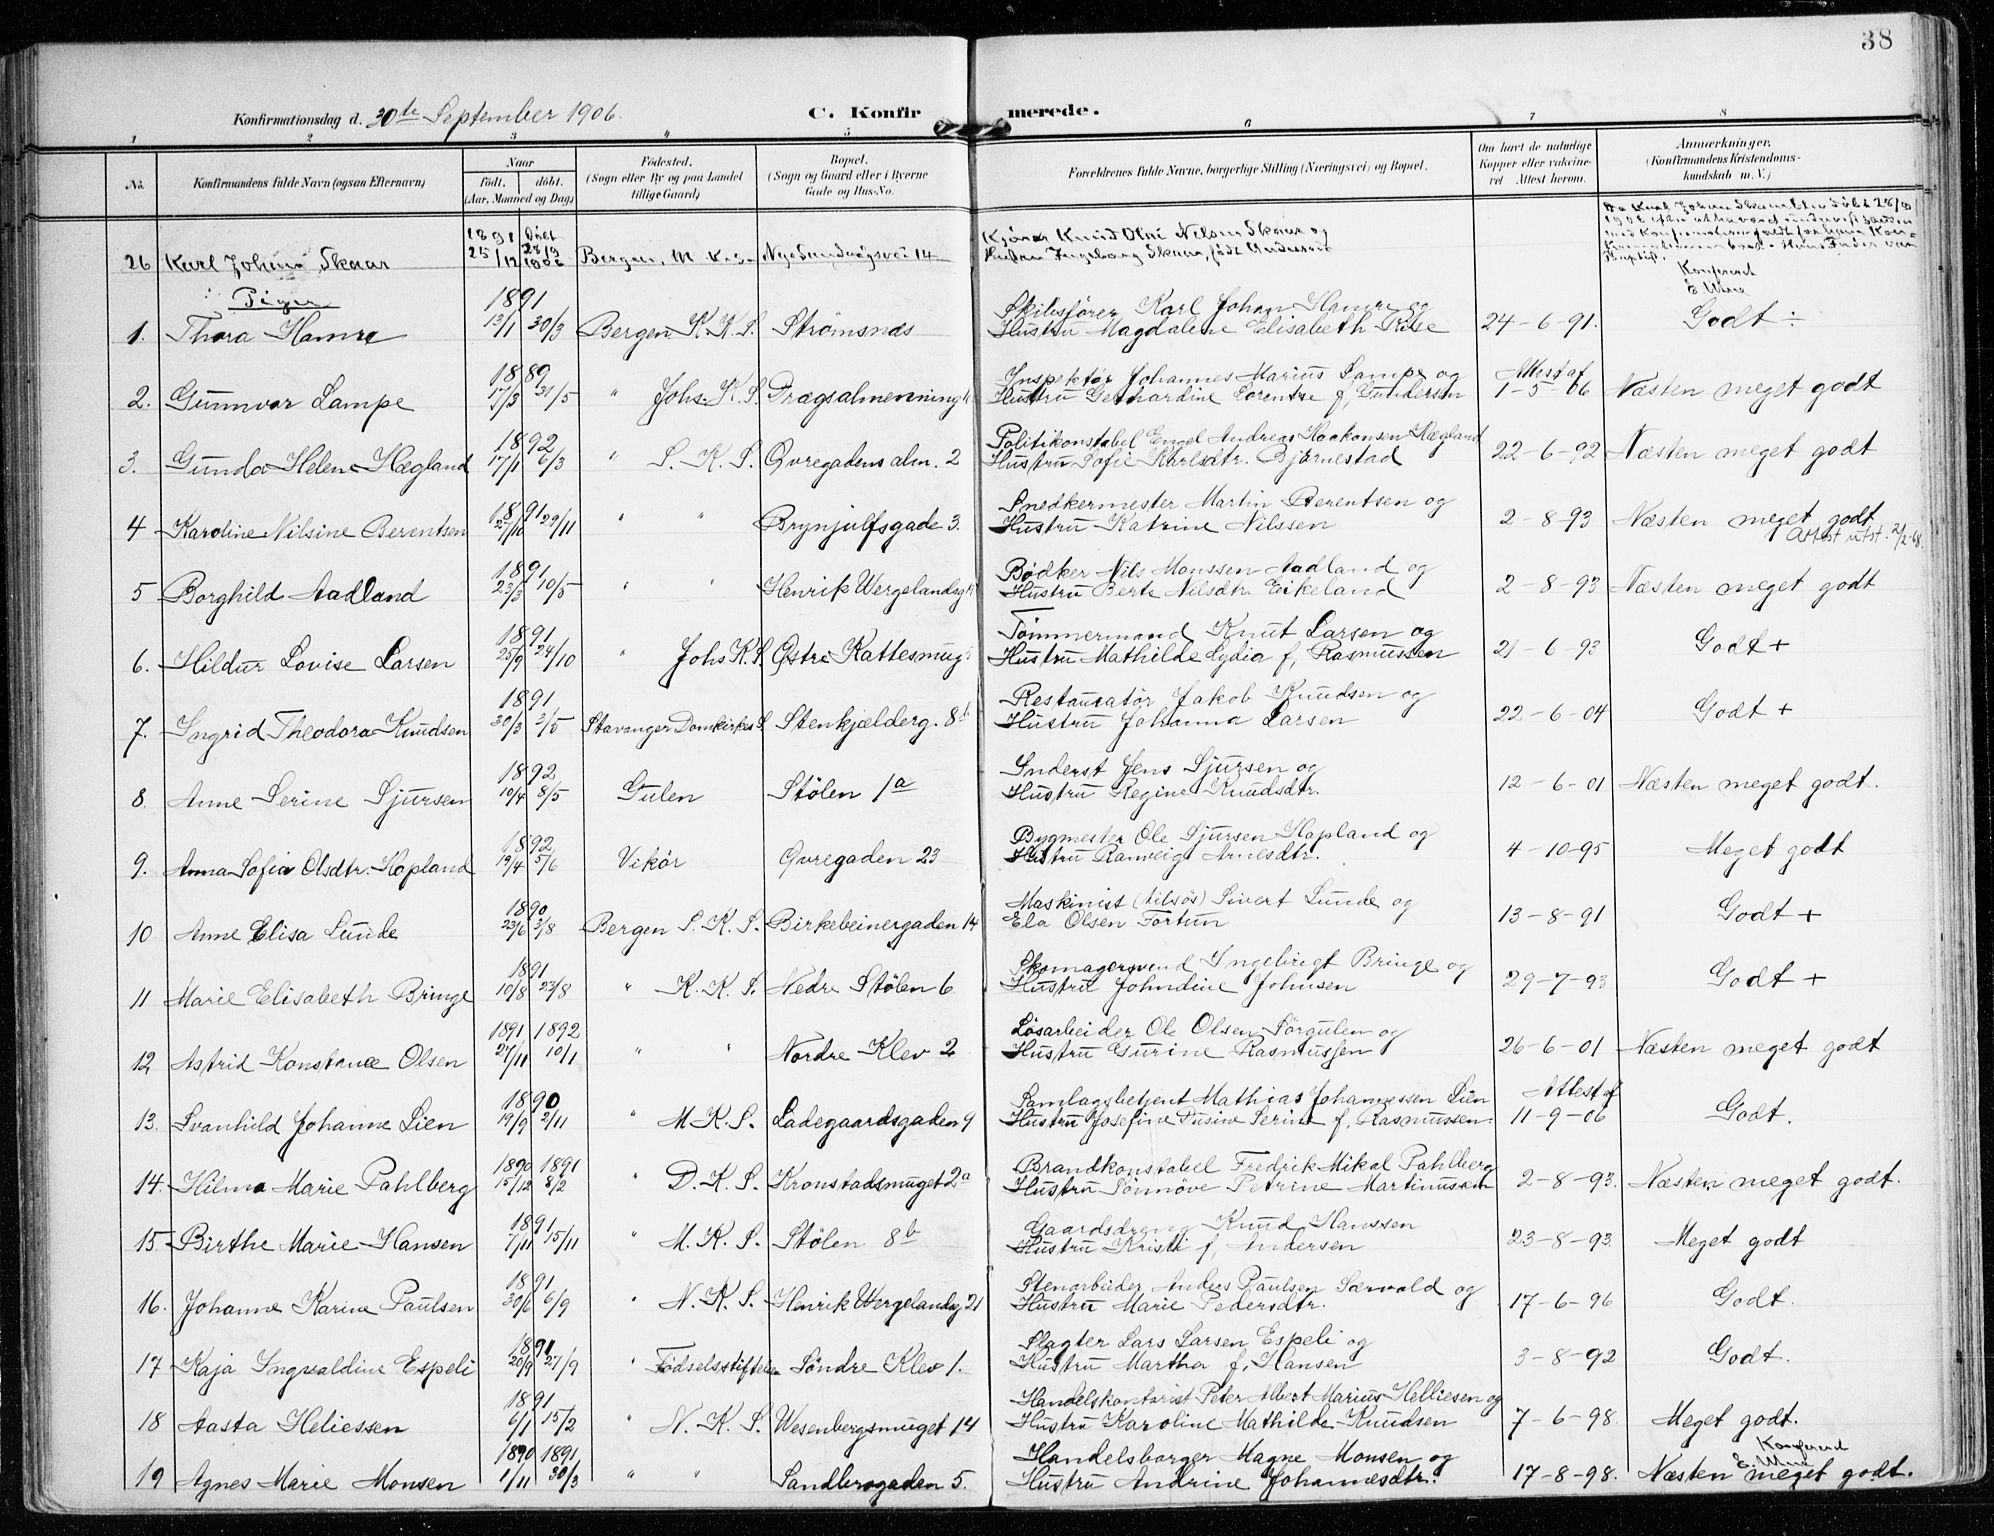 38
Konfirmationsdag d. 30te September 1906. C. Konfirmerede.
1 2 3 4 5 6 7 8
No. Konfirmandens fulde Navn (ogsaa Efternavn) Naar Født. døbt. (Aar, Maaned og Dag) Fødested. (Sogn eller By og paa Landet tillige Gaard) Bopæl. (Sogn og Gaard eller i Byerne Gade og Hus-No. Forældrenes fulde Navne, borgerlige Stilling (Næringsvei) og Bopæl. Om havt de naturlige Kopper eller vaksineret Attest herom. Anmærkninger. (Konfirmandens Kristendomskundskab m. V.)
26 Karl Johan Skaar 1891 25/12 Bergen, M. K. S. Nye Sandviksvei 14 Knud Olai Nilsen Skaar og
Hustru Ingeborg Skaar, født Andersen
Konfereret
Piger
1. Thora Hamre 1891 13/1 30/3 Bergen K. K. S. Strømsnæs Skibsfører Karl Johan Hamre og
Hustru Magdalene Elisabeth Riise 24-6-91. Godt ÷
2. Gunnvor Lampe 1889 17/3 31/5 " Johs. K. S. Dragsalmenning Inspektør Johannes Marius Lampe og
Hustru Gerhardine Lorentse f. Gundersen Attest af 1-5-06 Næsten meget godt
3. Gunda Helene Hægland 1892 17/1 6/3 " S. K. S. Øvregadens alm. 2 Politikonstabel Engel Andreas Haakonsen Hægland
Hustru Sofie Karlsdtr. Bjørnestad 22-6-92 Næsten meget godt
4 Karoline Nilsine Berentsen 1891 27/10 29/11 " " Brynjulfsgade 3. Snedkermester Martin Berentsen og
Hustru Katrine Nilssen 2-8-93 Næsten meget godt
Attest utst. 2/2-68.
5 Borghild Aadland 1891 23/3 10/5 " " Henrik Wergelandsg. Bødker Nils Monssen Aadland og
Hustru Berte Nilsdtr. Eikeland 2-8-93 Næsten meget godt
6. Hildur Lovise Larsen 1891 25/9 24/10 " Johs K. S. Østre Kattesmug Tømmermand Knut Larsen og
Hustru Mathilde Lydia f. Rasmussen 21-6-93 Godt +
7. Ingrid Theodora Knudsen 1891 30/3 3/5 Stavanger Domkirkes S. Stenkjælderg. 8b Restauratør Jakob Knudsen og
Hustru Johanna Larsen 22-6-04 Godt +
8. Anne Serine Sjursen 1892 10/4 8/5 Gulen Stølen 1a Inderst Jens Sjursen og
Hustru Regine Knudsdtr. 12-6-01 Næsten meget godt.
9. Anna Sofia Olsdtr. Hapland 1892 19/4 5/6 Vikør Øvregaden 23 Bygmester Ole Sjursen Hapland og
Hustru Ranveig Arnesdtr. 4-10-95 Meget godt
10 Anne Elisa Lunde 1890 23/6 3/8 Bergen S. K. S. Birkebeinergaden 14 Maskinist (tilsøs) Sivert Lunde og
Ela Olsen Fortun 13-8-91 Godt +
11 Marie Elisabeth Bringe 1891 10/8 23/8 " K. K. S. Nedre Stølen 6 Skomagersvend Ingebrigt Bringe og
Hustru Johndine Johnsen 29-7-93 Godt +
12 Astrid Konstance Olsen 1891 27/11 1892 10/1 " " Nordre Klev 2 Løsarbeider Ole Olsen Sørgulen og
Hustru Gurine Rasmussen 26-6-01 Næsten meget godt
13. Svanhild Johanne Lien 1890 19/9 2/11 " M. K. S. Ladegaardsgaden 9 Samlagsbetjent Mathias Johannessen Lien
Hustru Josefine Dusine Serine f. Rasmussen Attest af 11-9-06 Godt.
14. Hilma Marie Pahlberg 1890 15/12 1891 8/2 " D. K. S. Kronstadsmuget 2a Brandkonstabel Fredrik Mikal Pahlberg
Hustru Sønnøve Petrine Martinussen 2-8-93. Næsten meget godt.
15. Birthe Marie Hansen 1891 7/11 15/11 " M. K. S. Stølen 8b Gaardsdreng Knud Hanssen
Hustru Kristi f. Andersen 23-8-93. Meget godt
16. Johanne Karine Paulsen 1891 30/6 6/9 " N. K. S. Henrik Wergelandsg 21 Stenarbeider Anders Paulsen Sævold og
Hustru Marie Pedersdtr. 17-6-96 Godt.
17 Kaja Ingvaldine Espeli 1891 20/9 27/9 " Fødselsstiftelsen Søndre Klev 1. Slagter Lars Larsen Espeli og
Hustru Martha f. Hansen 3-8-92 Godt.
18 Aasta Heliessen 1891 6/1 15/2 " N. K. S. Wesenbergsmuget 14 Handelskontorist Peter Albert Marius Helliesen og
Hustru Karoline Mathilde Knudsen 7-6-98. Meget godt.
19 Agnes Marie Monsen 1890 1/11 1891 30/3 " " Sandbrogaden 5. Handelsborger Magne Monsen og
Hustru Andrine Johannesdtr. 17-8-98. Næsten meget godt.
Konfereret